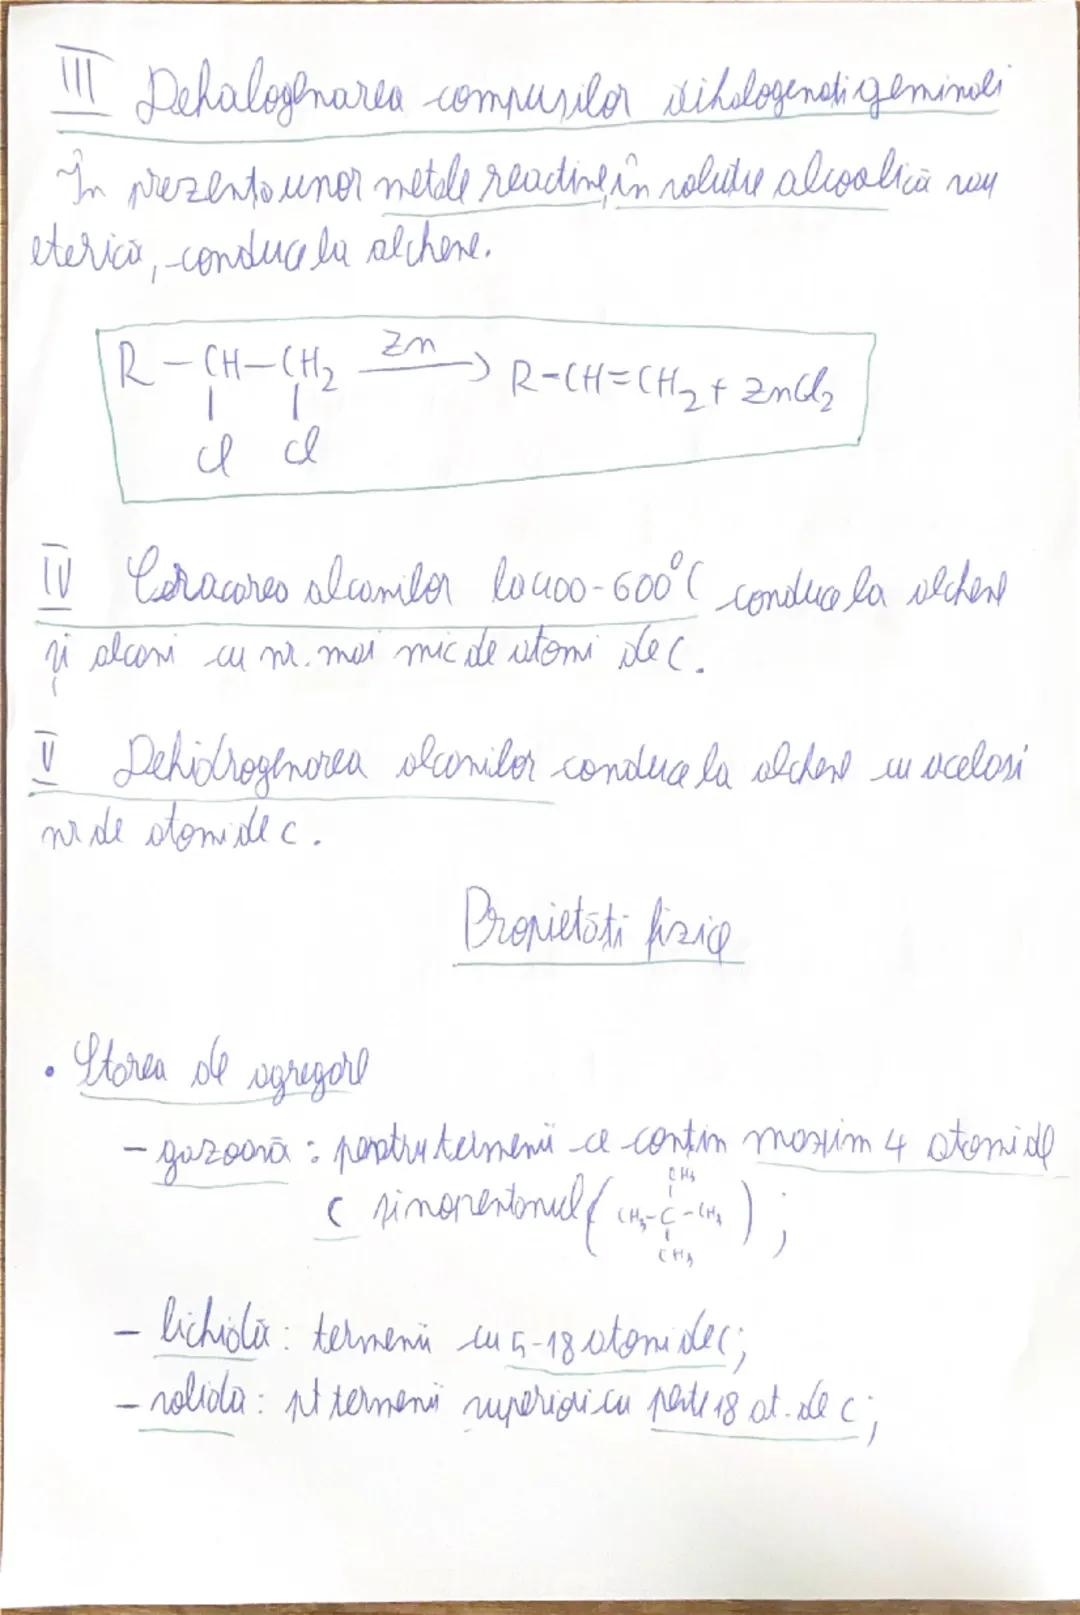 III Dehalogenarea compusilor dihalogenati geminali
În prezenta unor metale reactive, în solutie alcoolică sau
eterică, conduce la alchene.
R - CH - CH2 Zn → R-CH=CH2 + ZnCl2
Cl Cl
IV Coracarea alcanilor la 400-600°C conduce la alchene
și alcani cu nr. mai mic de atomi de C.
V Dehidrogenarea alcanilor conduce la alchene cu acelasi
nr de atomi de C.
Propietăti fizice
• Starea de agregare
- gazoasă : pentru termenii ce contin maxim 4 atomi de
CH3
C si neopentanul ( CH3-C-CH3 ) ;
CH3
- lichidă : termenii cu 5-18 atomi de C;
- solida : pt termenii superiori cu peste 18 at. de C ;